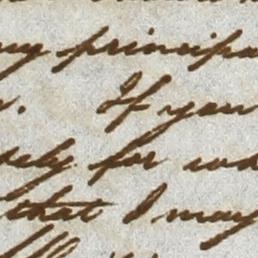 my principa
. If you
dely for
that I may